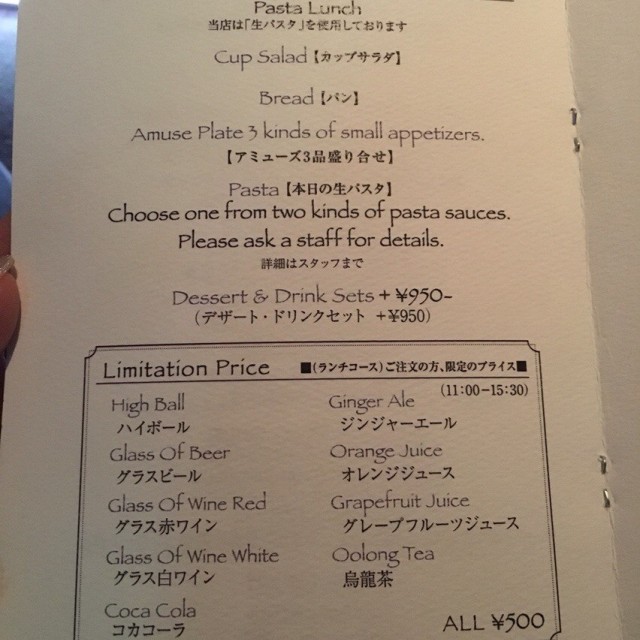 Pasta Lunch
当店は「生パスタ」を使用しております
Cup Salad【カップサラダ】
Bread【パン】
Amuse Plate 3 kinds of small appetizers.
【アミューズ3品盛り合せ】
Pasta【本日の生パスタ】
Choose one from two kinds of pasta sauces.
Please ask a staff for details.
詳細はスタッフまで
Dessert & Drink Sets + ¥950-
（デザート・ドリンクセット +¥950）
Limitation Price ■（ランチコース）ご注文の方、限定のプライス■
（11:00-15:30）
High Ball
ハイボール
Glass Of Beer
グラスビール
Glass Of Wine Red
グラス赤ワイン
Glass Of Wine White
グラス白ワイン
Coca Cola
コカコーラ
Ginger Ale
ジンジャーエール
Orange Juice
オレンジジュース
Grapefruit Juice
グレープフルーツジュース
Oolong Tea
烏龍茶
ALL ¥500